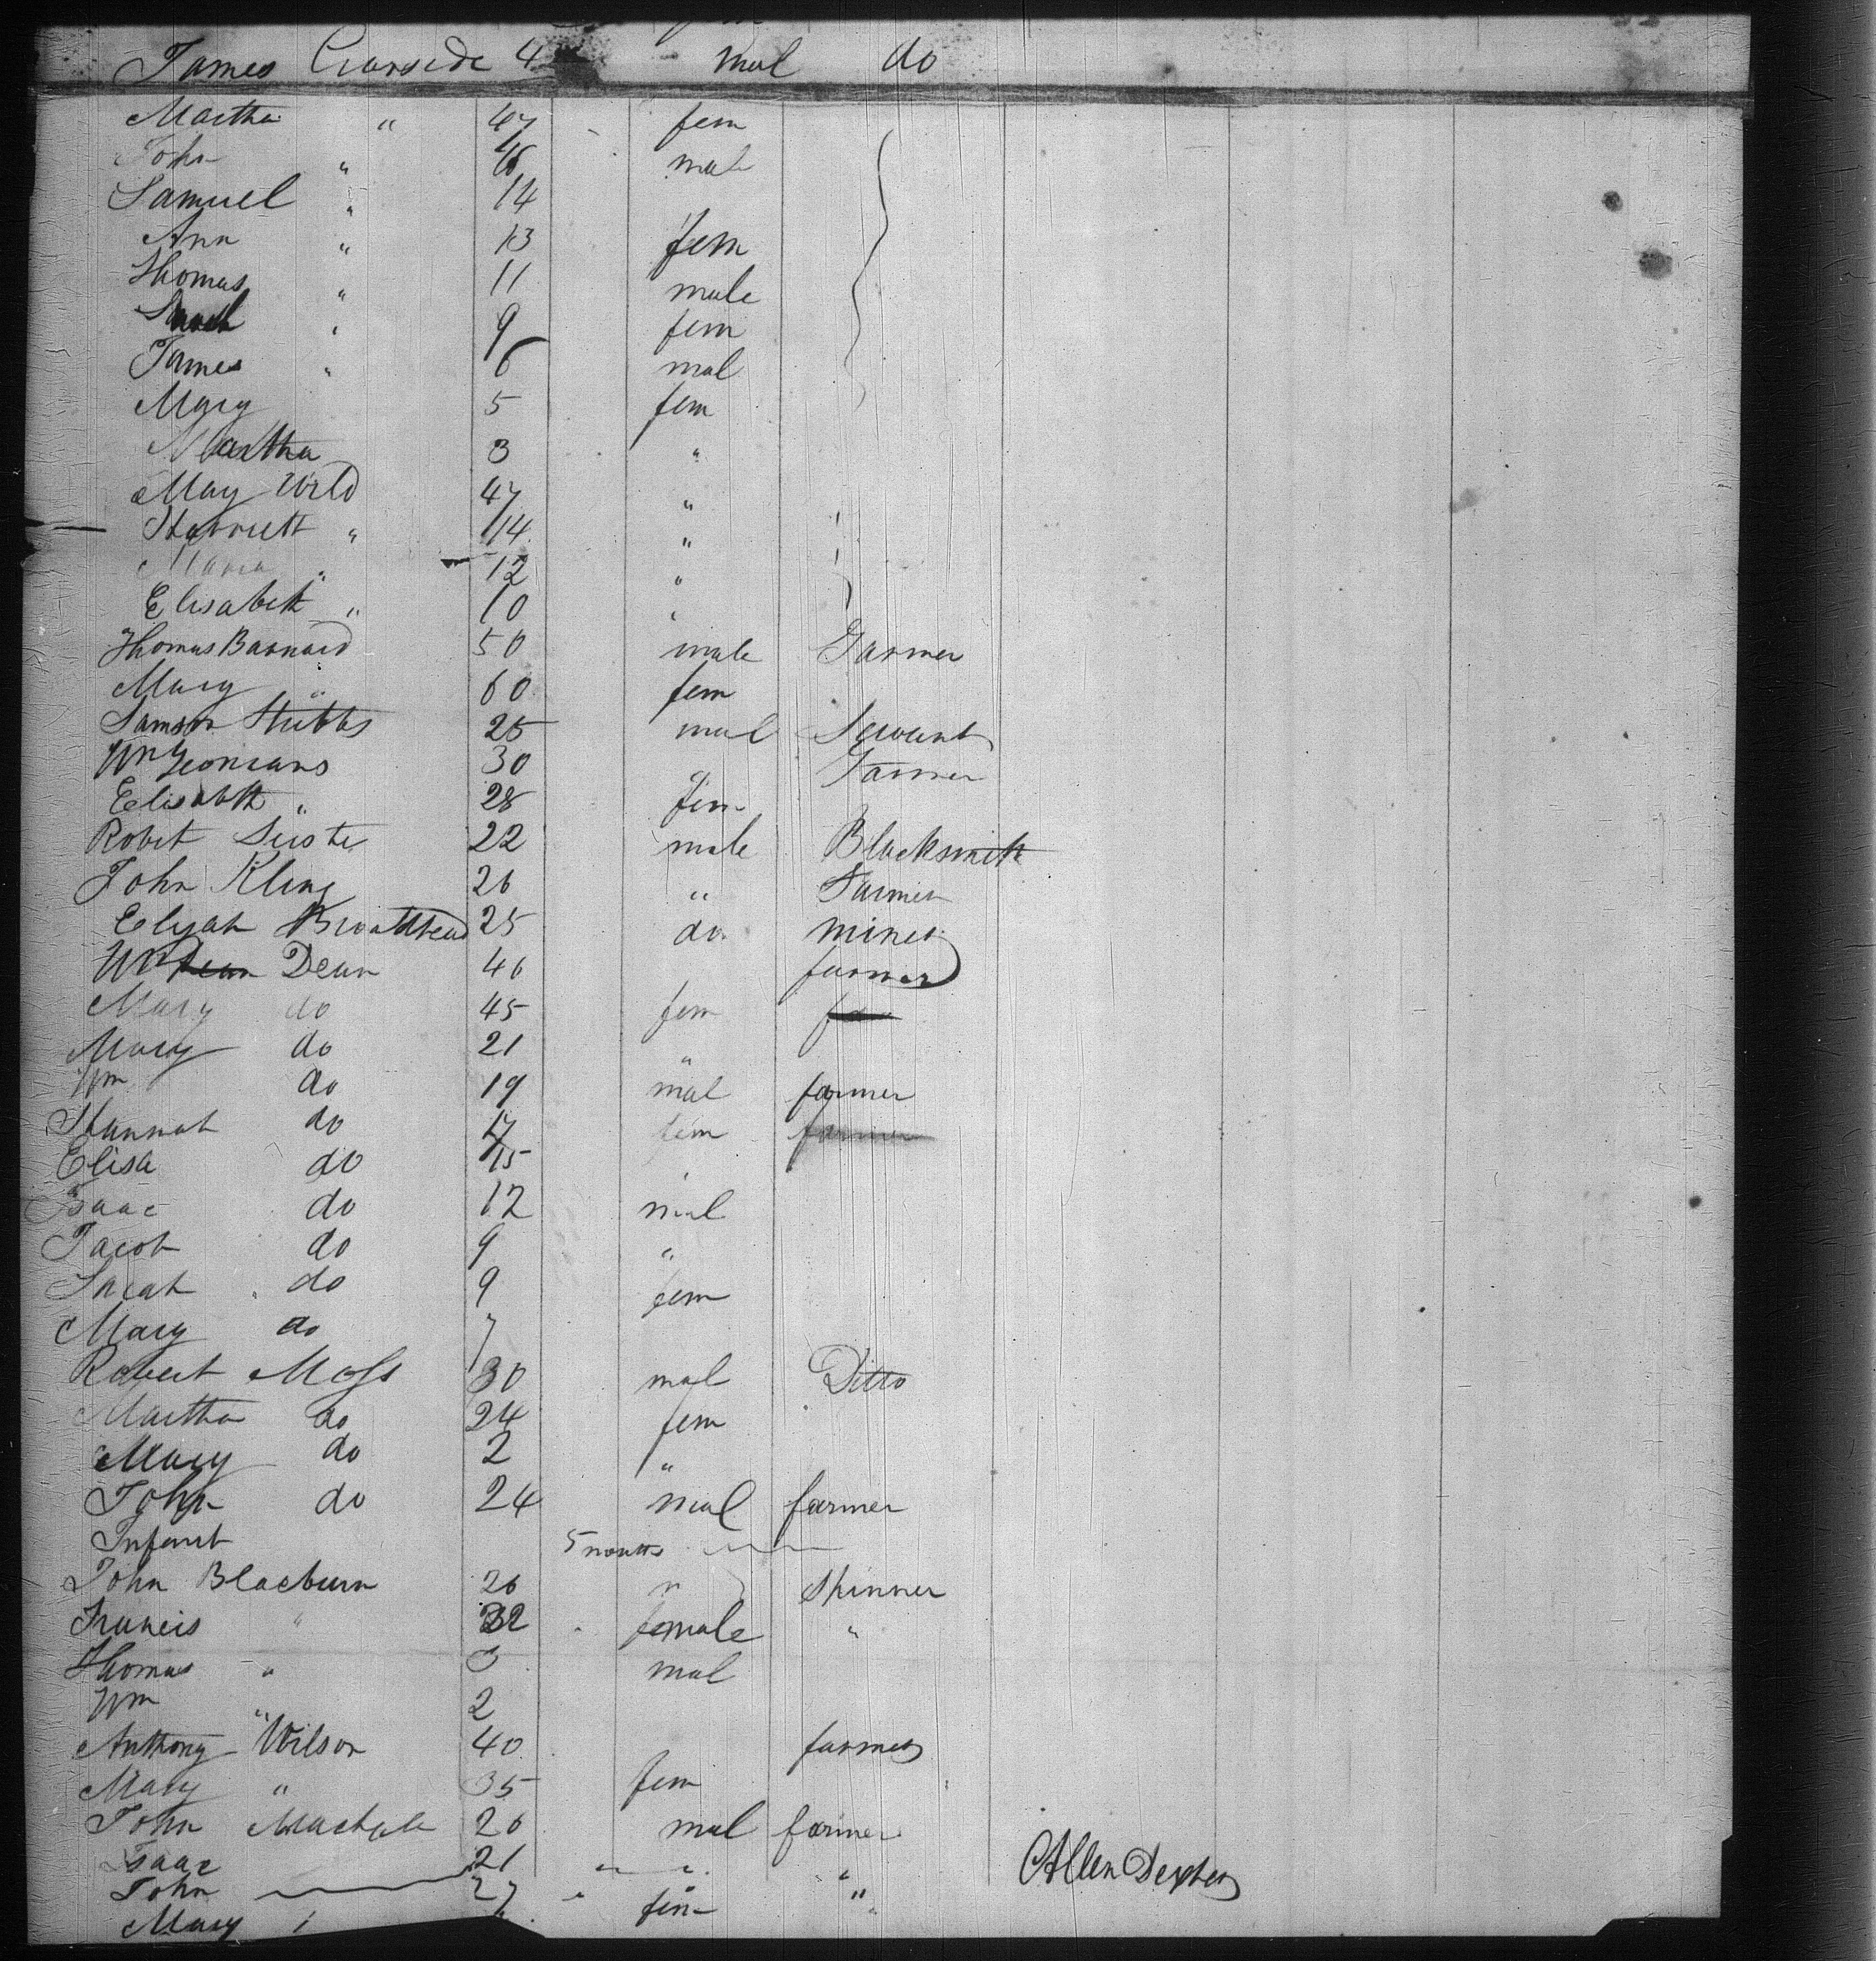 James Garside 4 mal do
Martha " 47 fem
John " 16 male
Samuel " 14
Ann " 13 fem
Thomas " 11 male
Sarah " 9 fem
James " 6 mal
Mary 5 fem
Martha 3 "
May Wild 47 "
Harriett " 14 "
Maria " 12 "
Elisabeth " 10 "
Thomas Barnard 50 male Farmer
Mary " 60 fem
Samson Stubbs 25 mal Servant
Wm Yeomans 30 Farmer
Elisabth " 28 fem
Robet 22 male Blacksmith
John Kling 26 " Farmer
Elijah Broadhead 25 do miner
Wm Dean Dean 46 farmer
Mary do 45 fem
Mary do 21 "
Wm do 19 mal farmer
Hannah do 17 fem farmer
Elisa do 15 "
Isaac do 12 mal
Jacob do 9 "
Sarah do 9 fem
Mary do 7
Robert Moss 30 mal Ditto
Martha do 24 fem
Mary do 2 "
John do 24 mal farmer
Infant 5 months
John Blacburn 26 " Spinner
Francis " 32 female "
Thomas " 3 mal
Wm " 2
Anthony Wilson 40 farmer
Mary " 35 fem
John 26 mal farmer
Isaac 21 " " "
John 27 " fem "
Mary
Allen Dexter